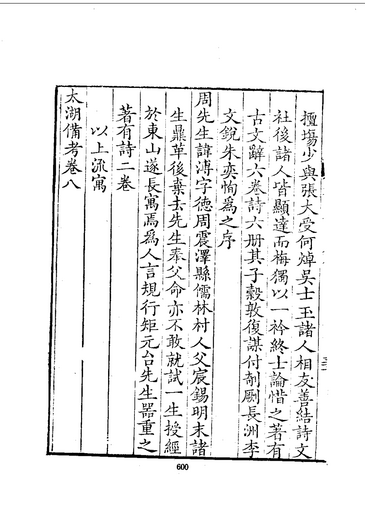 擅塲少與張大受何焯吳士玉諸人相友善結詩文
社後諸人皆顯達而梅獨以一衿終士論惜之著有
古文辭六卷詩六册其子㝅敦復謀付剞劂長洲李
文銳朱奕恂爲之序
周先生諱溥字德周震澤縣儒林村人父宸錫明末諸
生鼎革後棄去先生奉父命亦不敢就試一生授經
於東山遂長寓焉爲人言規行矩元台先生器重之
著有詩二卷
以上流寓
太湖備考卷八
600